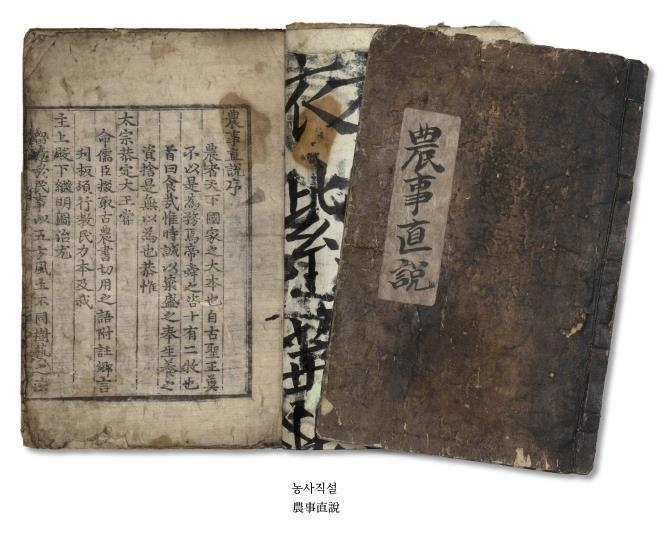 農事直說序
農者天下國家之大本也自古聖王莫
不以是爲務焉帝舜之咨十有二牧也
首曰食哉惟時誠以粢盛之奉生養之
資捨是無以爲也恭惟
太宗恭定大王嘗
命儒臣掇取古農書切用之語附註鄉言
刊板頒行敎民力本及我
主上殿下繼明圖治尤
留意於民事以五方風土不同樹藝之法
衣紫
農事直說
농사직설
農事直說